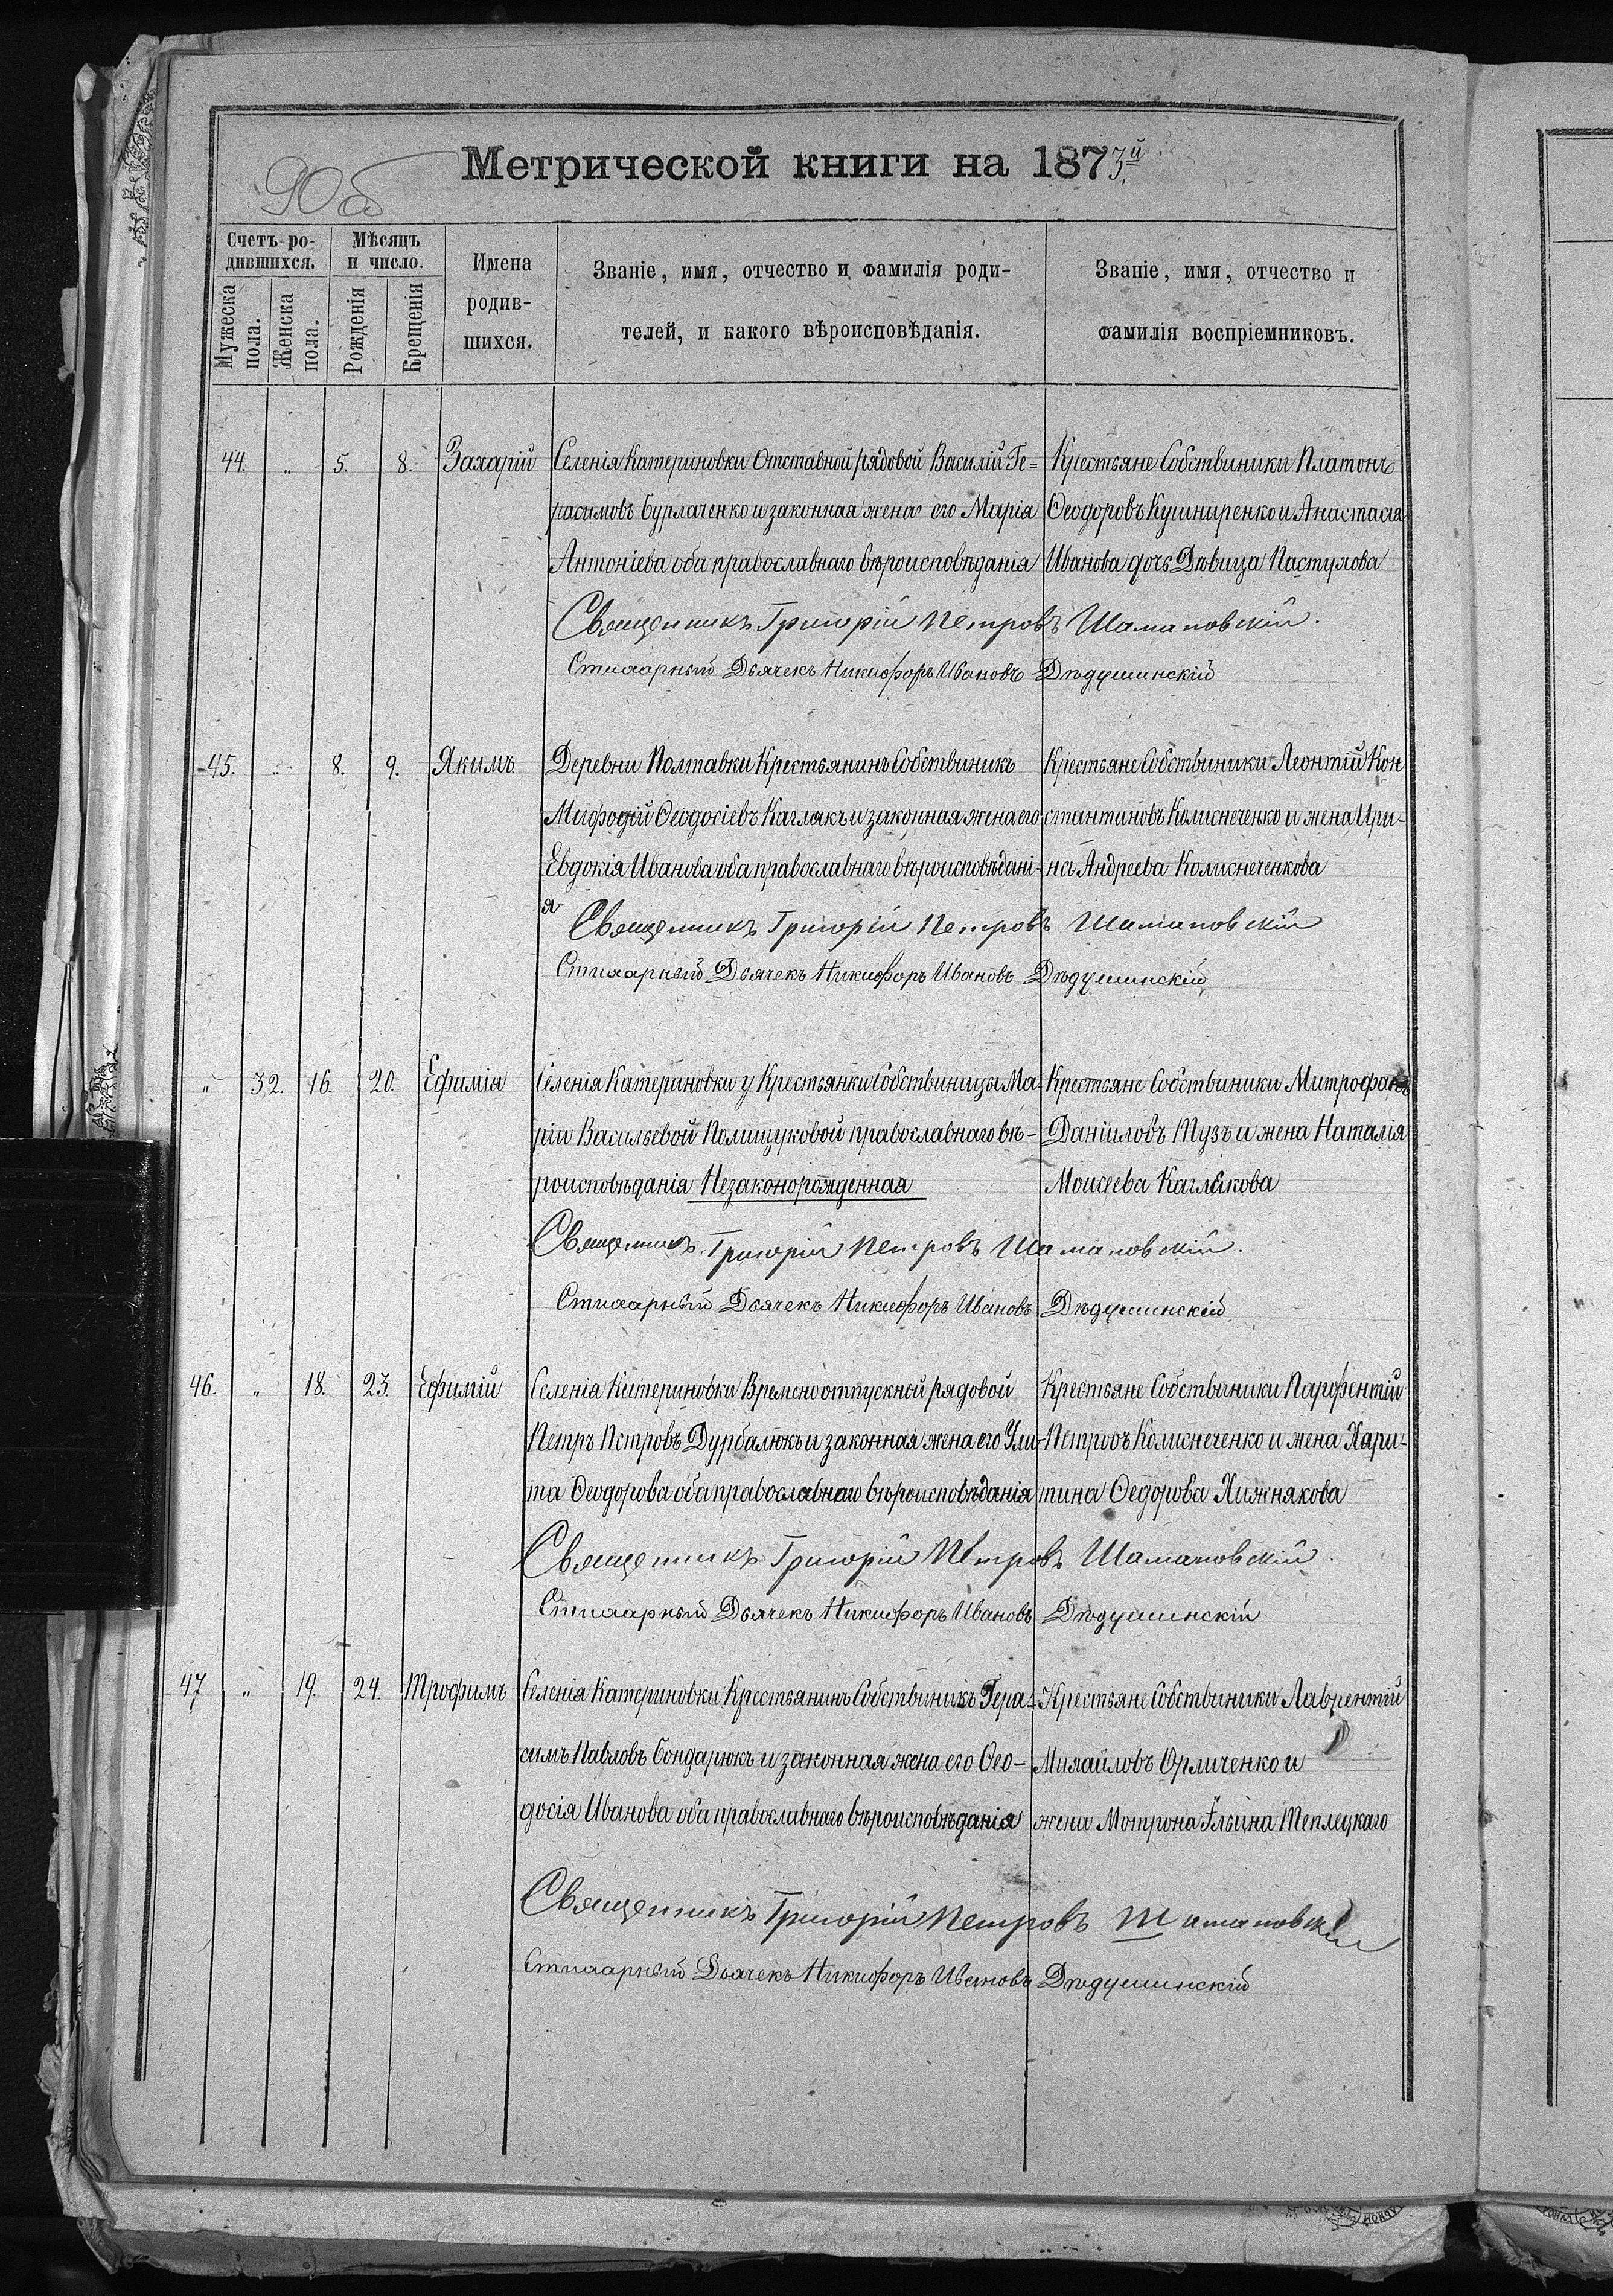 90б
Метрической книги на 1873й
Счетъ ро-
дившихся.
Мѣсяцъ
и число.
Мужеска
пола.
Женска
пола.
Рожденія
Крещенія
Имена
родив-
шихся.
Званіе, имя, отчество и фамилія роди-
телей, и какого вѣроисповѣданія.
Званіе, имя, отчество и
фамилія воспріемниковъ.
44. „ 5. 8. Захарій Селенія Катериновки Отставной рядовой Василій Ге- Крестьяне Собственики Платонъ
расимовъ Бурлаченко и законная жена его Марія Ѳеодоровъ Кушниренко и Анастасія
Антоніева оба православнаго вѣроисповѣданія Иванова дочь Дѣвица Пастухова
Священникъ Григорій Петровъ Шамановскій.
Стихарный Дьячекъ Никифоръ Ивановъ Дѣдушинскій
45. „ 8. 9. Якимъ Деревни Полтавки Крестьянинъ Собственикъ Крестьяне Собственики Леонтій Кон
Мифодій Ѳеодосіевъ Каглякъ и законная жена его стантиновъ Колисниченко и жена Ири-
Евдокія Иванова оба православнаго вѣроисповѣдані- на Андреева Колисниченкова
я
Священникъ Григорій Петровъ Шамановскій
Стихарный Дьячекъ Никифоръ Ивановъ Дѣдушинскій
„ 32. 16. 20. Ефимія Селенія Катериновки у Крестьянки Собственицы Ма- Крестьяне Собственики Митрофанъ
ріи Васильевой Полищуковой православнаго вѣ- Даніиловъ Тузъ и жена Наталія
роисповѣданія Незаконорожденная Моисеева Каглякова
Священникъ Григорій Петровъ Шамановскій.
Стихарный Дьячекъ Никифоръ Ивановъ Дѣдушинскій
46. „ 18. 23. Ефимій Селенія Катериновки Времено отпускной рядовой Крестьяне Собственики Парфентій
Петръ Петровъ Дурбалюкъ и законная жена его Ули- Петровъ Колисниченко и жена Хари-
та Ѳеодорова оба православнаго вѣроисповѣданія тина Ѳедорова Хижнякова
Священникъ Григорій Петровъ Шамановскій.
Стихарный Дьячекъ Никифоръ Ивановъ Дѣдушинскій
47 „ 19. 24. Трофимъ Селенія Катериновки Крестьянинъ Собственикъ Гера- Крестьяне Собственики Лаврентій
симъ Павловъ Бондарюкъ и законная жена его Ѳео- Михайловъ Орличенко и
досія Иванова оба православнаго вѣроисповѣданія жена Мотрона Ильина Теплецкаго
Священникъ Григорій Петровъ Шамановскій
Стихарный Дьячекъ Никифоръ Ивановъ Дѣдушинскій